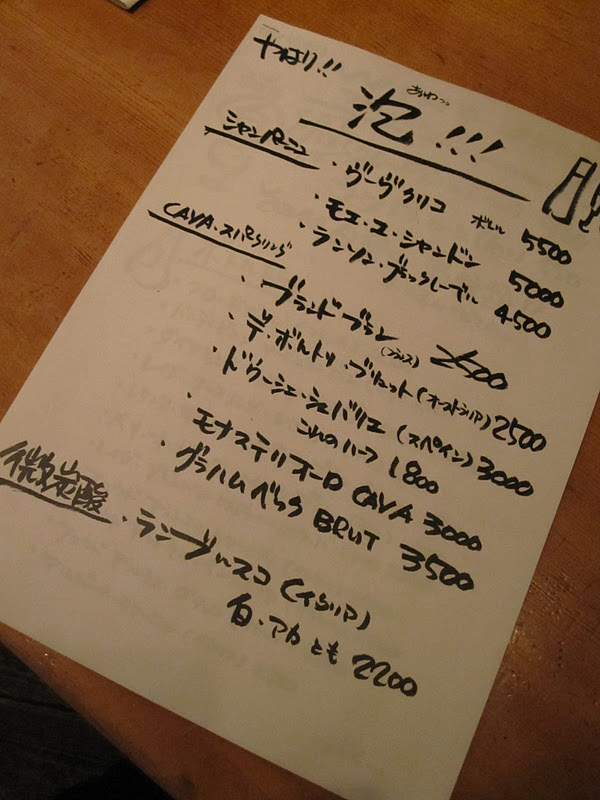 やはり!!
あわっっ
泡!!!
シャンパーニュ
・ヴーヴクリコ ボトル 5500
・モエ・エ・シャンドン 5000
・ランソン・ブラックレーベル 4500
CAVA・スパークリング
・ブランドブラン (フランス) 2500
・デ・ボルトリ・ブリュット (オーストラリア) 2500
・ドゥーシェ・シュバリエ (スペイン) 3000
これのハーフ 1800
・モナステリオーロ CAVA 3000
・グラハムベック BRUT 3500
微炭酸
・ランブルスコ (イタリア)
白・アカとも 2200